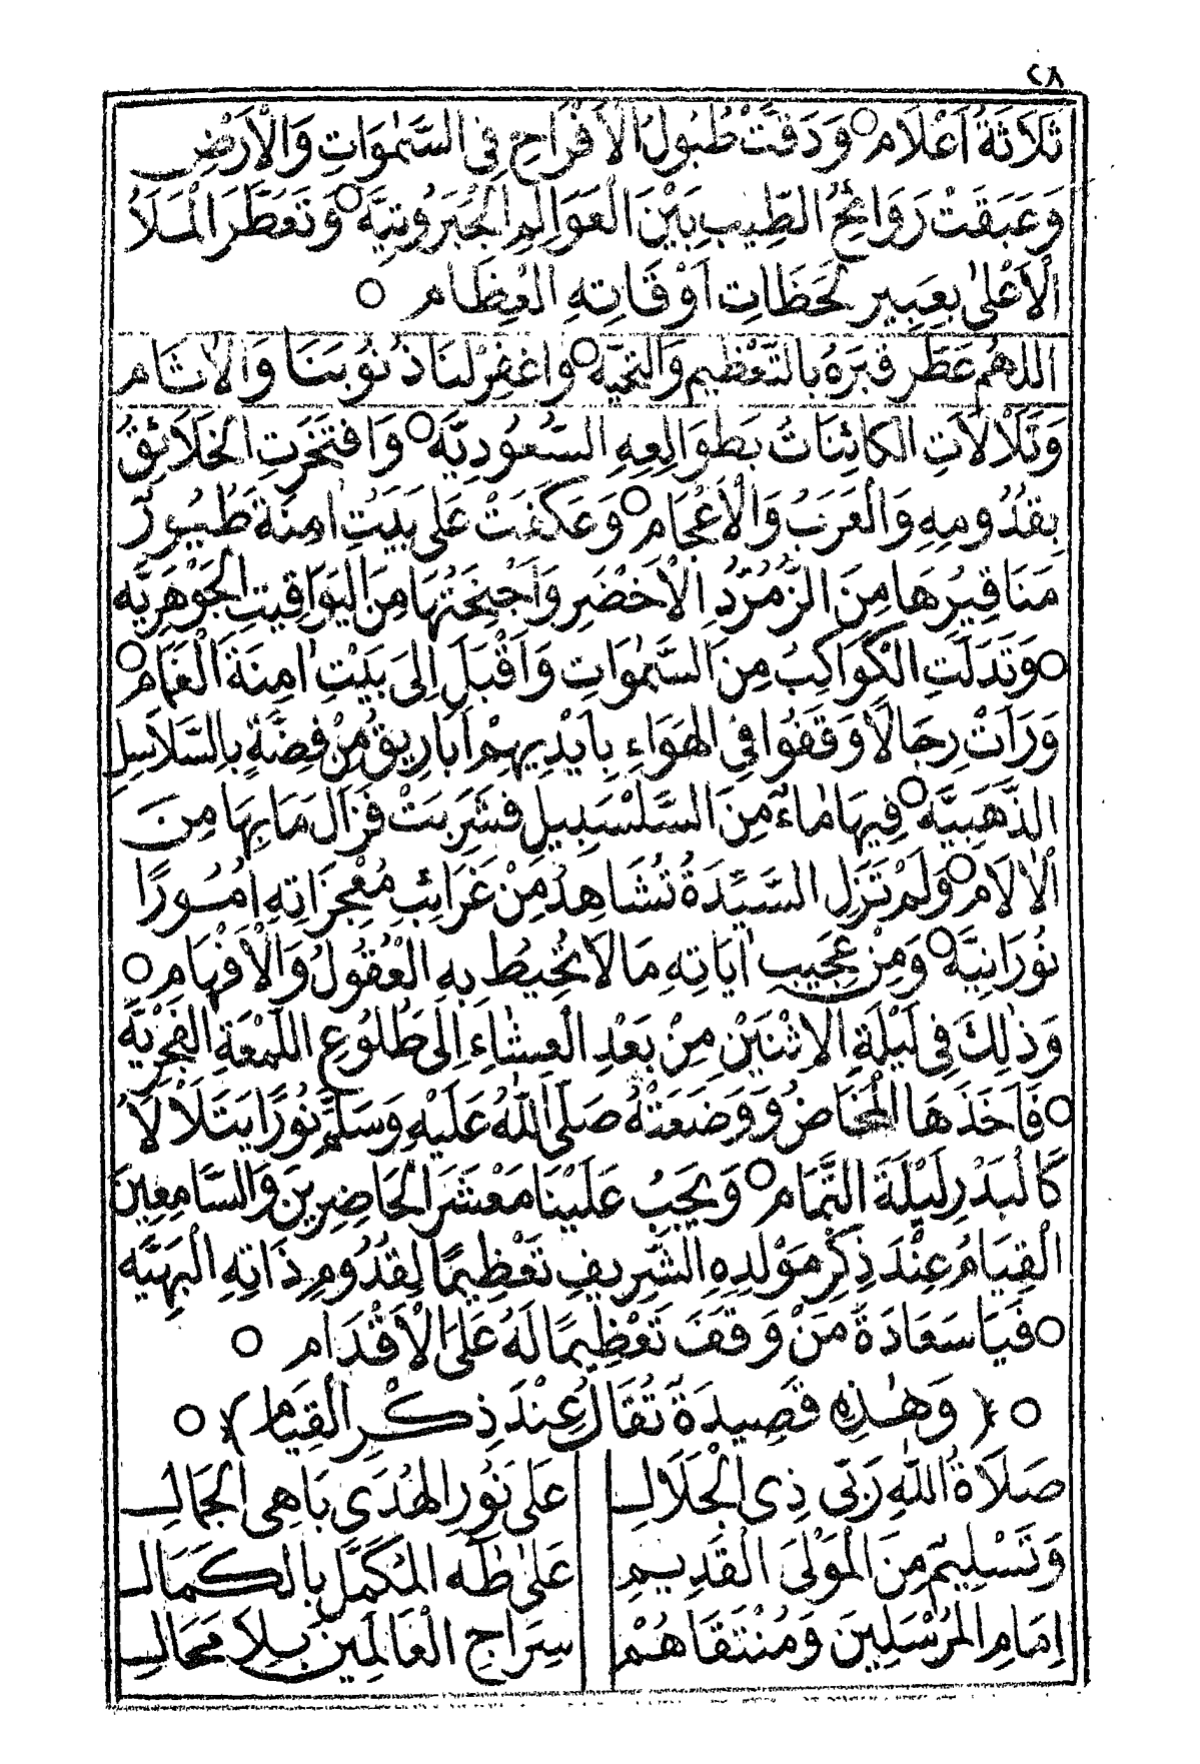 ٢٨
ثَلَاثَةُ اَعْلَامٍ ○ وَدَقَّتْ طُبُولُ الْاَفْرَاحِ فِى السَّمٰوَاتِ وَالْاَرْضِ
وَعَبَقَتْ رَوَائِحُ الطِّيبِ بَيْنَ الْعَوَالِمِ الْجَبَرُوتِيَّةِ ○ وَتَعَطَّرَ الْمَلَأُ
الْاَعْلٰى بِعَبِيرِ لَحَظَاتِ اَوْقَاتِهِ الْعِظَامِ ○
اَللّٰهُمَّ عَطِّرْ قَبْرَهُ بِالتَّعْظِيمِ وَالتَّحِيَّةِ ○ وَاغْفِرْ لَنَا ذُنُوبَنَا وَالْاٰثَامِ
وَتَلَأْلَأَتِ الْكَائِنَاتُ بِطَوَالِعِهِ السُّعُودِيَّةِ ○ وَافْتَخَرَتِ الْخَلَائِقُ
بِقُدُومِهِ وَالْعَرَبُ وَالْاَعْجَامِ ○ وَعَكَفَتْ عَلَى بَيْتِ اٰمِنَةَ طُيُورٌ
مَنَاقِيرُهَا مِنَ الزُّمُرُّدِ الْاَخْضَرِ وَاَجْنِحَتُهَا مِنَ الْيَوَاقِيتِ الْجَوْهَرِيَّةِ
○ وَتَدَلَّتِ الْكَوَاكِبُ مِنَ السَّمٰوَاتِ وَاَقْبَلَ اِلَى بَيْتِ اٰمِنَةَ الْغَمَامُ ○
وَرَاَتْ رِجَالًا وَقَفُوا فِى الْهَوَاءِ بِاَيْدِيهِمْ اَبَارِيقُ مِنْ فِضَّةٍ بِالسَّلَاسِلِ
الذَّهَبِيَّةِ ○ فِيهَا مَاءٌ مِنَ السَّلْسَبِيلِ فَشَرِبَتْ فَزَالَ مَا بِهَا مِنَ
الْاٰلَامِ ○ وَلَمْ تَزَلِ السَّيِّدَةُ تُشَاهِدُ مِنْ غَرَائِبِ مُعْجِزَاتِهِ اُمُورًا
نُورَانِيَّةً ○ وَمِنْ عَجِيبِ اٰيَاتِهِ مَا لَا تُحِيطُ بِهِ الْعُقُولُ وَالْاَفْهَامِ ○
وَذٰلِكَ فِى لَيْلَةِ الْاِثْنَيْنِ مِنْ بَعْدِ الْعِشَاءِ اِلَى طُلُوعِ اللَّمْعَةِ الْفَجْرِيَّةِ
○ فَاَخَذَهَا الْمَخَاضُ وَوَضَعَتْهُ صَلَّى اللّٰهُ عَلَيْهِ وَسَلَّمَ نُورًا يَتَلَأْلَأُ
كَالْبَدْرِ لَيْلَةَ التَّمَامِ ○ وَيَجِبُ عَلَيْنَا مَعْشَرَ الْحَاضِرِينَ وَالسَّامِعِينَ
الْقِيَامُ عِنْدَ ذِكْرِ مَوْلِدِهِ الشَّرِيفِ تَعْظِيمًا لِقُدُومِ ذَاتِهِ الْبَهِيَّةِ
○ فَيَا سَعَادَةَ مَنْ وَقَفَ تَعْظِيمًا لَهُ عَلَى الْاَقْدَامِ ○
○ ﴿ وَهٰذِهِ قَصِيدَةٌ تُقَالُ عِنْدَ ذِكْرِ الْقِيَامِ ﴾ ○
صَلَاةُ اللّٰهِ رَبِّى ذِى الْجَلَالِ عَلَى نُورِ الْهُدَى بَاهِى الْجَمَالِ
وَتَسْلِيمٌ مِنَ الْمَوْلَى الْقَدِيمِ عَلٰى طٰهٰ الْمُكَمَّلِ بِالْكَمَالِ
اِمَامِ الْمُرْسَلِينَ وَمُنْتَقَاهُمْ سِرَاجِ الْعَالَمِينَ بِلَا مَحَالِ